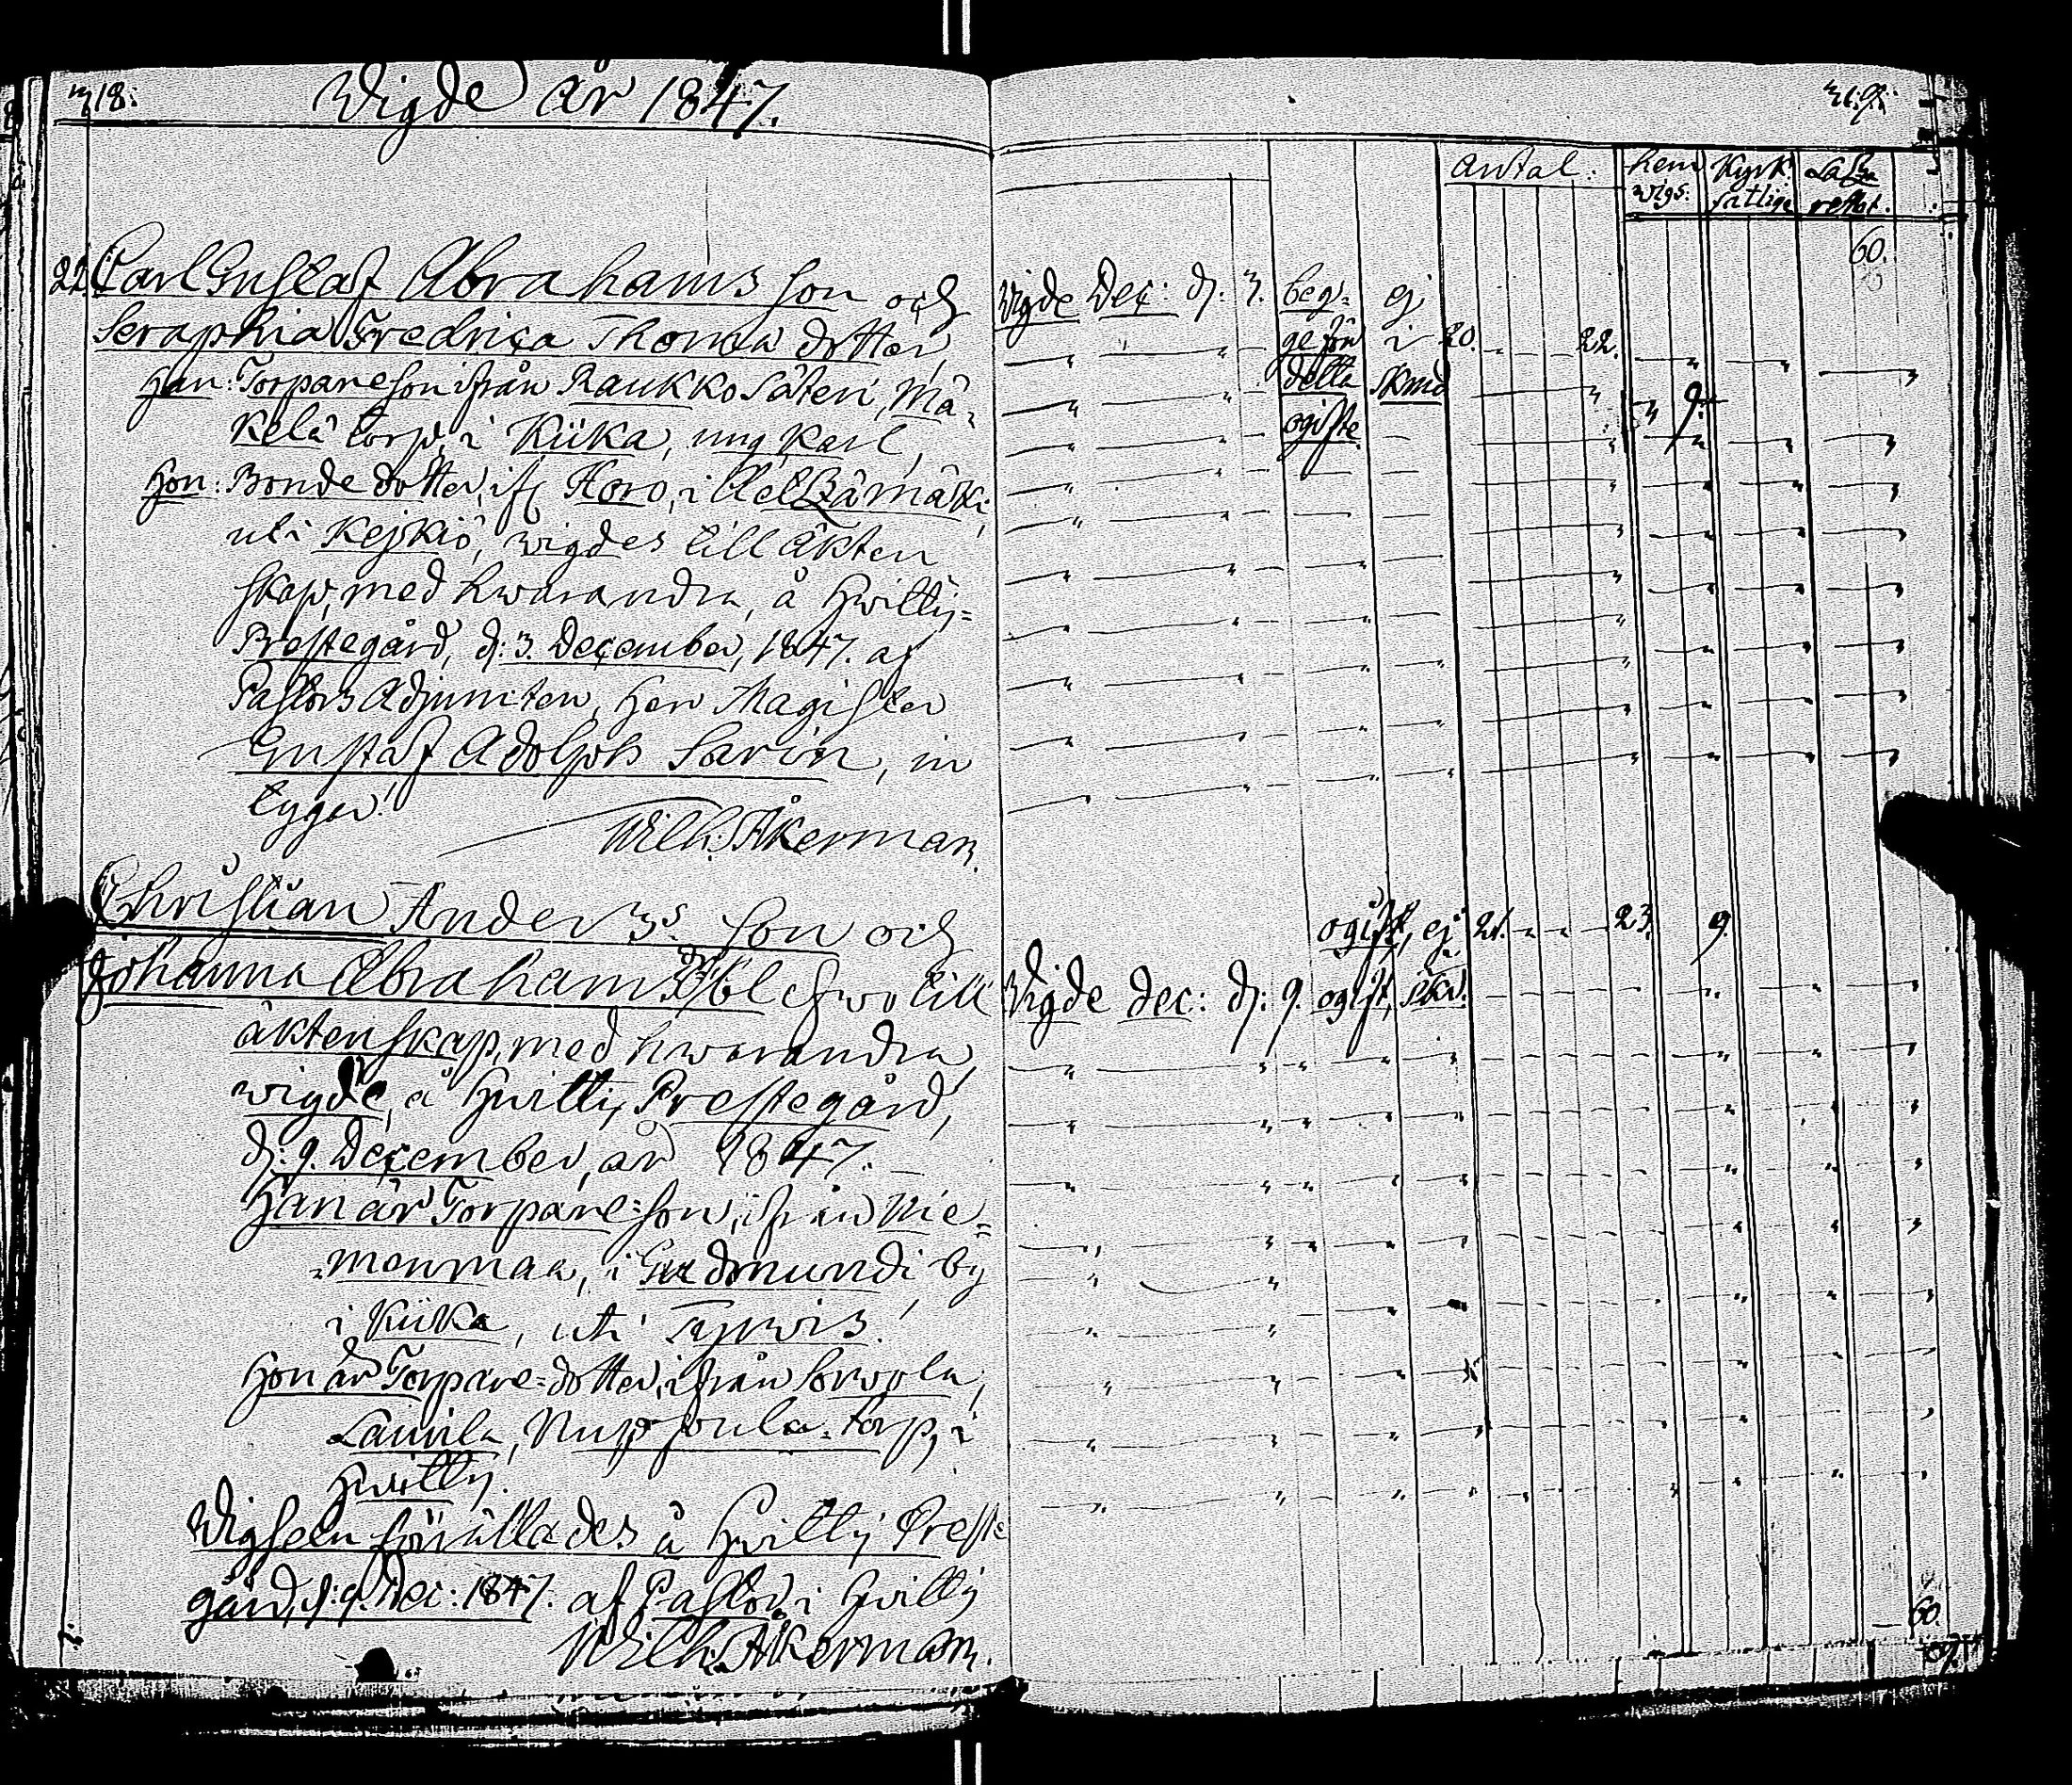 318:
Wigde år 1847.
22. Carl Gustaf Abrahams son och
Seraphia Fredrica Thoma dotter,
Han: Torpareson ifrån Raukko Säteri, Mä-
kelä torp, i Kiika, ung karl,
Hon: Bonde dotter, ifr Horo, i
uti Kejkiö, wigdes till äkten
skap, med hwarandra, å Hwittij=
Prestegård, d: 3. December, 1847. af
Pastors Adjuncten, Herr Magister
Gustaf Adolph Sarin, in
tygar!
Wilh: Åkerman.
Christian Anders son och
Johanna Abrahams blefwo till
äktenskap, med hwarandra,
wigde, å Hwittij Prestegård,
d: 9. December, år 1847.
Han är Torpare=son, ifrån Nie=
=menmaa, i Gudmundi by
i Kiika, uti Tyrwis.
Hon är Torpare=dotter, ifrån Sorwola,
Lauvila, torp, i
Hwittij.
Wigseln förrättades å Hwittij Preste
gård, d: 9. Dec: 1847. af Pastor i Hwittij
Wilh: Åkerman.
319:
antal:
hem
wigs.
Kyrk
sätlige
60.
Wigde Dec: d: 3. beg= ej
ge för i 20. 22.
detta skrud
ogifte 9.
ogift, ej 21. 23. 9.
Wigde dec: d: 9. ogift, skr.
60.